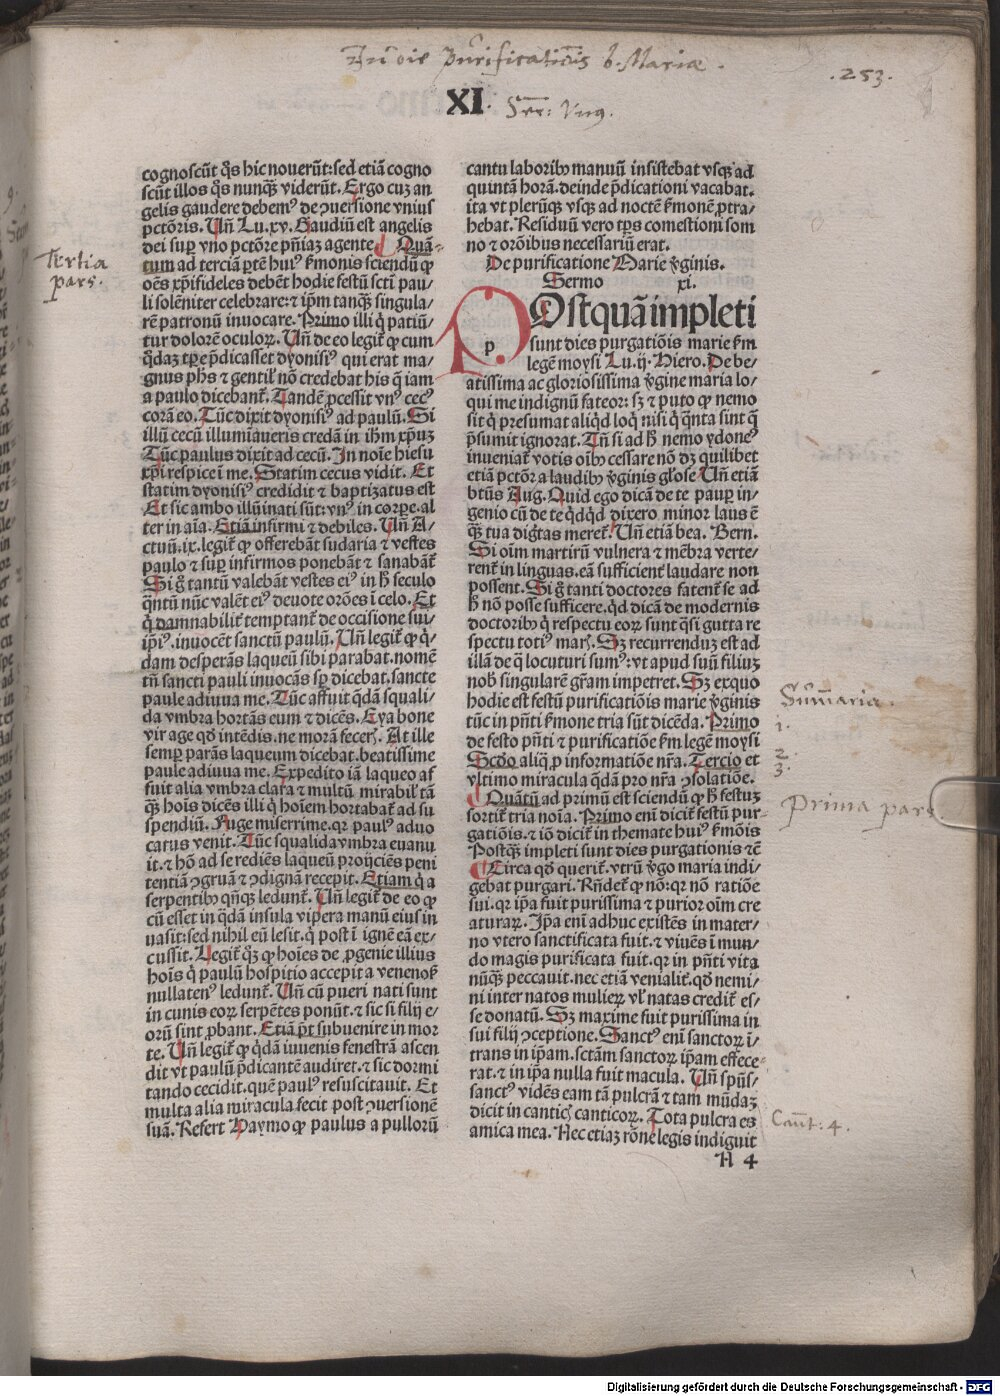 In die purificatiōis b. Mariæ.
.253.
XI. Ser: Vnꝰ.
cognoscūt q̄s hic nouerūt: sed etiā cogno
scūt illos q̄s nunqꝫ viderūt. Ergo cuz an
gelis gaudere debemꝰ de ↄuersione vnius
pctōris. Uñ Lu.xv. Gaudiū est angelis
dei suꝑ vno pctōre pñiaꝫ agente. Quā-
tum ad terciā ꝑtē huiꝰ ẜmonis sciendū ꝙ
oēs xp̄ifideles debēt hodie festū scti pau/
li solēniter celebrare: ⁊ ip̄m tanqꝫ singula/
rē patronū inuocare. Primo illi q̇ patiū/
tur dolorē oculoꝝ. Uñ de eo legit̄ ꝙ cum
q̇daꝫ tꝑe p̄dicasset dyonisiꝰ qui erat ma/
gnus ph̄s ⁊ gentil̓ nō credebat his q̄ iam
a paulo dicebant̄. Tandē ꝓcessit vnꝰ cecꝰ
corā eo. Tūc dixit dyonisiꝰ ad paulū. Si
illū cecū illumiaueris credā in ih̄m xp̄uꝫ
Tūc paulus dixit ad cecū. In noīe hiesu
xp̄i respice ī me. Statim cecus vidit. Et
statim dyonisiꝰ credidit ⁊ baptizatus est
Et sic ambo illūinati sūt: vnꝰ in corꝑe. al
ter in aīa. Etiā infirmi ⁊ debiles. Uñ A/
ctuū.ix. legit̄ ꝙ offerebāt sudaria ⁊ vestes
paulo ⁊ suꝑ infirmos ponebāt ⁊ sanabāt̄
Si g̊ tantū valebāt vestes eiꝰ in h̄ seculo
q̄ntū nūc valēt eiꝰ deuote orōes ī celo. Et
q̇ damnabilit̄ temptant̄ de occisione sui/
ip̄iꝰ. inuocēt sanctū paulū. Uñ legit̄ ꝙ q̇/
dam desperās laqueū sibi parabat. nomē
tñ sancti pauli inuocās sꝑ dicebat. sancte
paule adiuua me. Tūc affuit q̄dā squali/
da vmbra hortās eum ⁊ dicēs. Eya bone
vir age qd̄ intēdis. ne morā feceꝝ. At ille
semꝑ parās laqueum dicebat. beatissime
paule adiuua me. Expedito iā laqueo af
fuit alia vmbra clara ⁊ multū mirabil̓ tā
qꝫ hois dicēs illi q̇ hoīem hortabat̄ ad su
spendiū. Fuge miserrime. qꝛ paulꝰ aduo
catus venit. Tūc squalida vmbra euanu
it. ⁊ hō ad se rediēs laqueū proijciēs peni
tentiā ↄgruā ⁊ ↄdignā recepit. Etiam q̇ a
serpentibꝫ qn̄qꝫ ledunt̄. Uñ legit̄ de eo ꝙ
cū esset in q̄dā insula vipera manū eius in
uasit: sed nihil eū lesit. q̇ post ī ignē eā ex/
cussit. Legit̄ q̇ꝫ ꝙ hoīes de ꝓgenie illius
hoīs q̇ paulū hospitio accepit a venenoẜ
nullatenꝰ ledunt̄. Uñ cū pueri nati sunt
in cunis eoꝝ serpētes ponūt. ⁊ sic si filij e/
orū sint ꝓbant. Etiā pt̄ subuenire in mor
te. Uñ legit̄ ꝙ q̇dā iuuenis fenestrā ascen
dit vt paulū p̄dicantē audiret. ⁊ sic dormi
tando cecidit. quē paulꝰ resuscitauit. Et
multa alia miracula fecit post ↄuersionē
suā. Refert Haymo ꝙ paulus a pullorū
cantu laboribꝫ manuū insistebat vsqꝫ ad
quintā horā. deinde p̄dicationi vacabat.
ita vt plerūqꝫ vsqꝫ ad noctē ẜmonē ꝓtra/
hebat. Residuū vero tp̄s comestioni som
no ⁊ orōibus necessariū erat.
De purificatione Marie v̄ginis.
Sermo xi.
POstquā impleti
p
sunt dies purgatiōis marie ẜm
legē moysi Lu.ij. Hiero. De be/
atissima ac gloriosissima v̄gine maria lo/
qui me indignū fateor: sꝫ ⁊ puto ꝙ nemo
sit q̇ presumat aliq̇d loq̇ nisi q̇ q̄nta sunt q̄
p̄sumit ignorat. Tñ si ad h̄ nemo ydoneꝰ
inueniat̄ votis oībꝫ cessare nō dꝫ quilibet
etiā pctōr a laudibꝫ v̄ginis gl̓ose. Uñ etiā
btūs Aug. Quid ego dicā de te pauꝑ in/
genio cū de te q̇dq̇d dixero minor laus ē
qꝫ tua dig̓tas meret̄. Uñ etiā bea. Bern.
Si oīm martirū vulnera ⁊ mēbra verte/
rent̄ in linguas. eā sufficient̄ laudare non
possent. Si g̊ tanti doctores fatent̄ se ad
h̄ nō posse sufficere. qd̄ dicā de modernis
doctoribꝫ q̇ respectu eoꝝ sunt q̄si gutta re
spectu totiꝰ marꝭ. Sꝫ recurrenduꝫ est ad
illā de q̄ locuturi sumꝰ: vt apud suū filiuꝫ
nob̓ singularē gr̄am impetret. Sꝫ exquo
hodie est festū purificatiōis marie v̄ginis
tūc in pñti ẜmone tria sūt dicēda. Primo
de festo pñti ⁊ purificatiōe ẜm legē moysi
Scdo aliq̇ ꝓ informatiōe nr̄a. Tercio et
vltimo miracula q̄dā pro nr̄a ↄsolatiōe.
Quātū ad primū est sciendū ꝙ h̄ festuꝫ
sortit̄ tria noīa. Primo eni dicit̄ festū pur/
gatiōis. ⁊ iō dicit̄ in themate huiꝰ ẜmōis
Postqꝫ impleti sunt dies purgationis ⁊c̄
Circa qd̄ querit̄. vtrū v̄go maria indi/
gebat purgari. Rñdet̄ ꝙ nō: qꝛ nō ratiōe
sui. qꝛ ip̄a fuit purissima ⁊ purior oīm cre
aturaꝝ. Ip̄a eni adhuc existēs in mater/
no vtero sanctificata fuit. ⁊ viuēs ī mun/
do magis purificata fuit. qꝛ in pñti vita
nūqꝫ peccauit. nec etiā venialit̄. qd̄ nemi/
ni inter natos mulieꝝ vl̓ natas credit̄ es/
se donatū. Sꝫ maxime fuit purissima in
sui filij ↄceptione. Sanctꝰ eni sanctoꝝ ī/
trans in ip̄am. sctām sanctoꝝ ip̄am effece-
rat. ⁊ in ipa nulla fuit macula. Uñ spūs/
sanctꝰ vidēs eam tā pulcrā ⁊ tam mūdaꝫ
dicit in canticꝭ canticoꝝ. Tota pulcra es
amica mea. Hec etiaꝫ rōne legis indiguit
H 4
Tertia
pars.
Sūmaria.
1.
2.
3.
Prima pars.
Cant: 4.
Digitalisierung gefördert durch die Deutsche Forschungsgemeinschaft - DFG